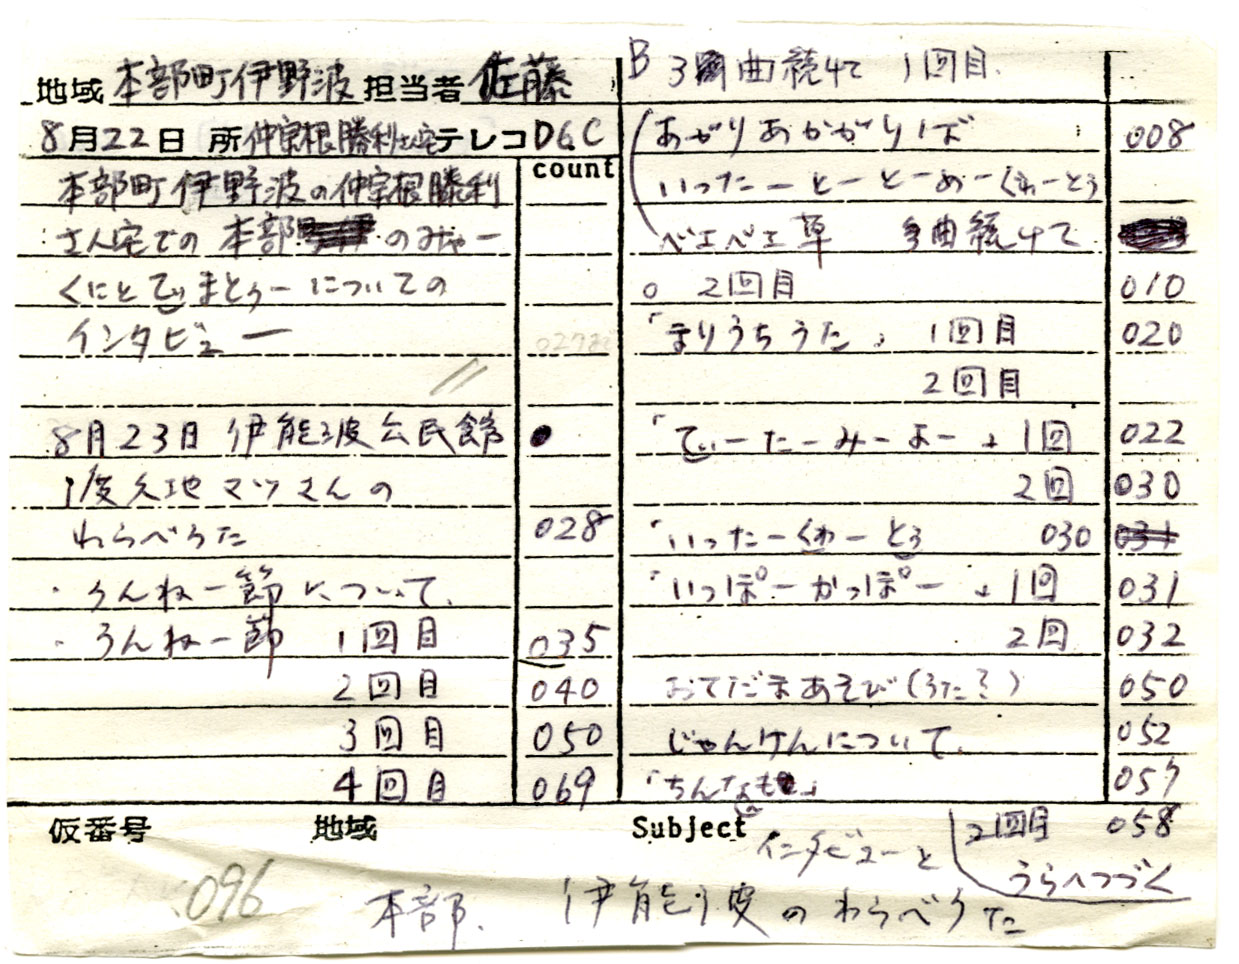 地域 本部町伊野波 担当者 佐藤
8月22日 所 仲宗根勝利さん宅 テレコ D6C
count
本部町伊野波の仲宗根勝利
さん宅での本部のみゃー
くにとてぃまとぅーについての
インタビュー
027まで
8月23日 伊能波公民館
渡久地マツさんの
わらべうた 028
・うんねー節について、
・うんねー節 1回目 035
2回目 040
3回目 050
4回目 069
B 3曲続けて 1回目
あがりあかがりーば 008
いったーとーとーめーくゎーとぅ
べェべェ草 3曲続けて
0 2回目 010
「まりうちうた」 1回目 020
2回目
「てぃーたーみーよー」 1回 022
2回 030
「いったーくゎーとぅ 030
「いっぽーかっぽー」 1回 031
2回 032
おてだまあそび(うた?) 050
じゃんけんについて、 052
「ちんなもー」 057
2回目 058
うらへつづく
仮番号 地域 Subject
096 本部、 インタビューと
伊能波のわらべうた